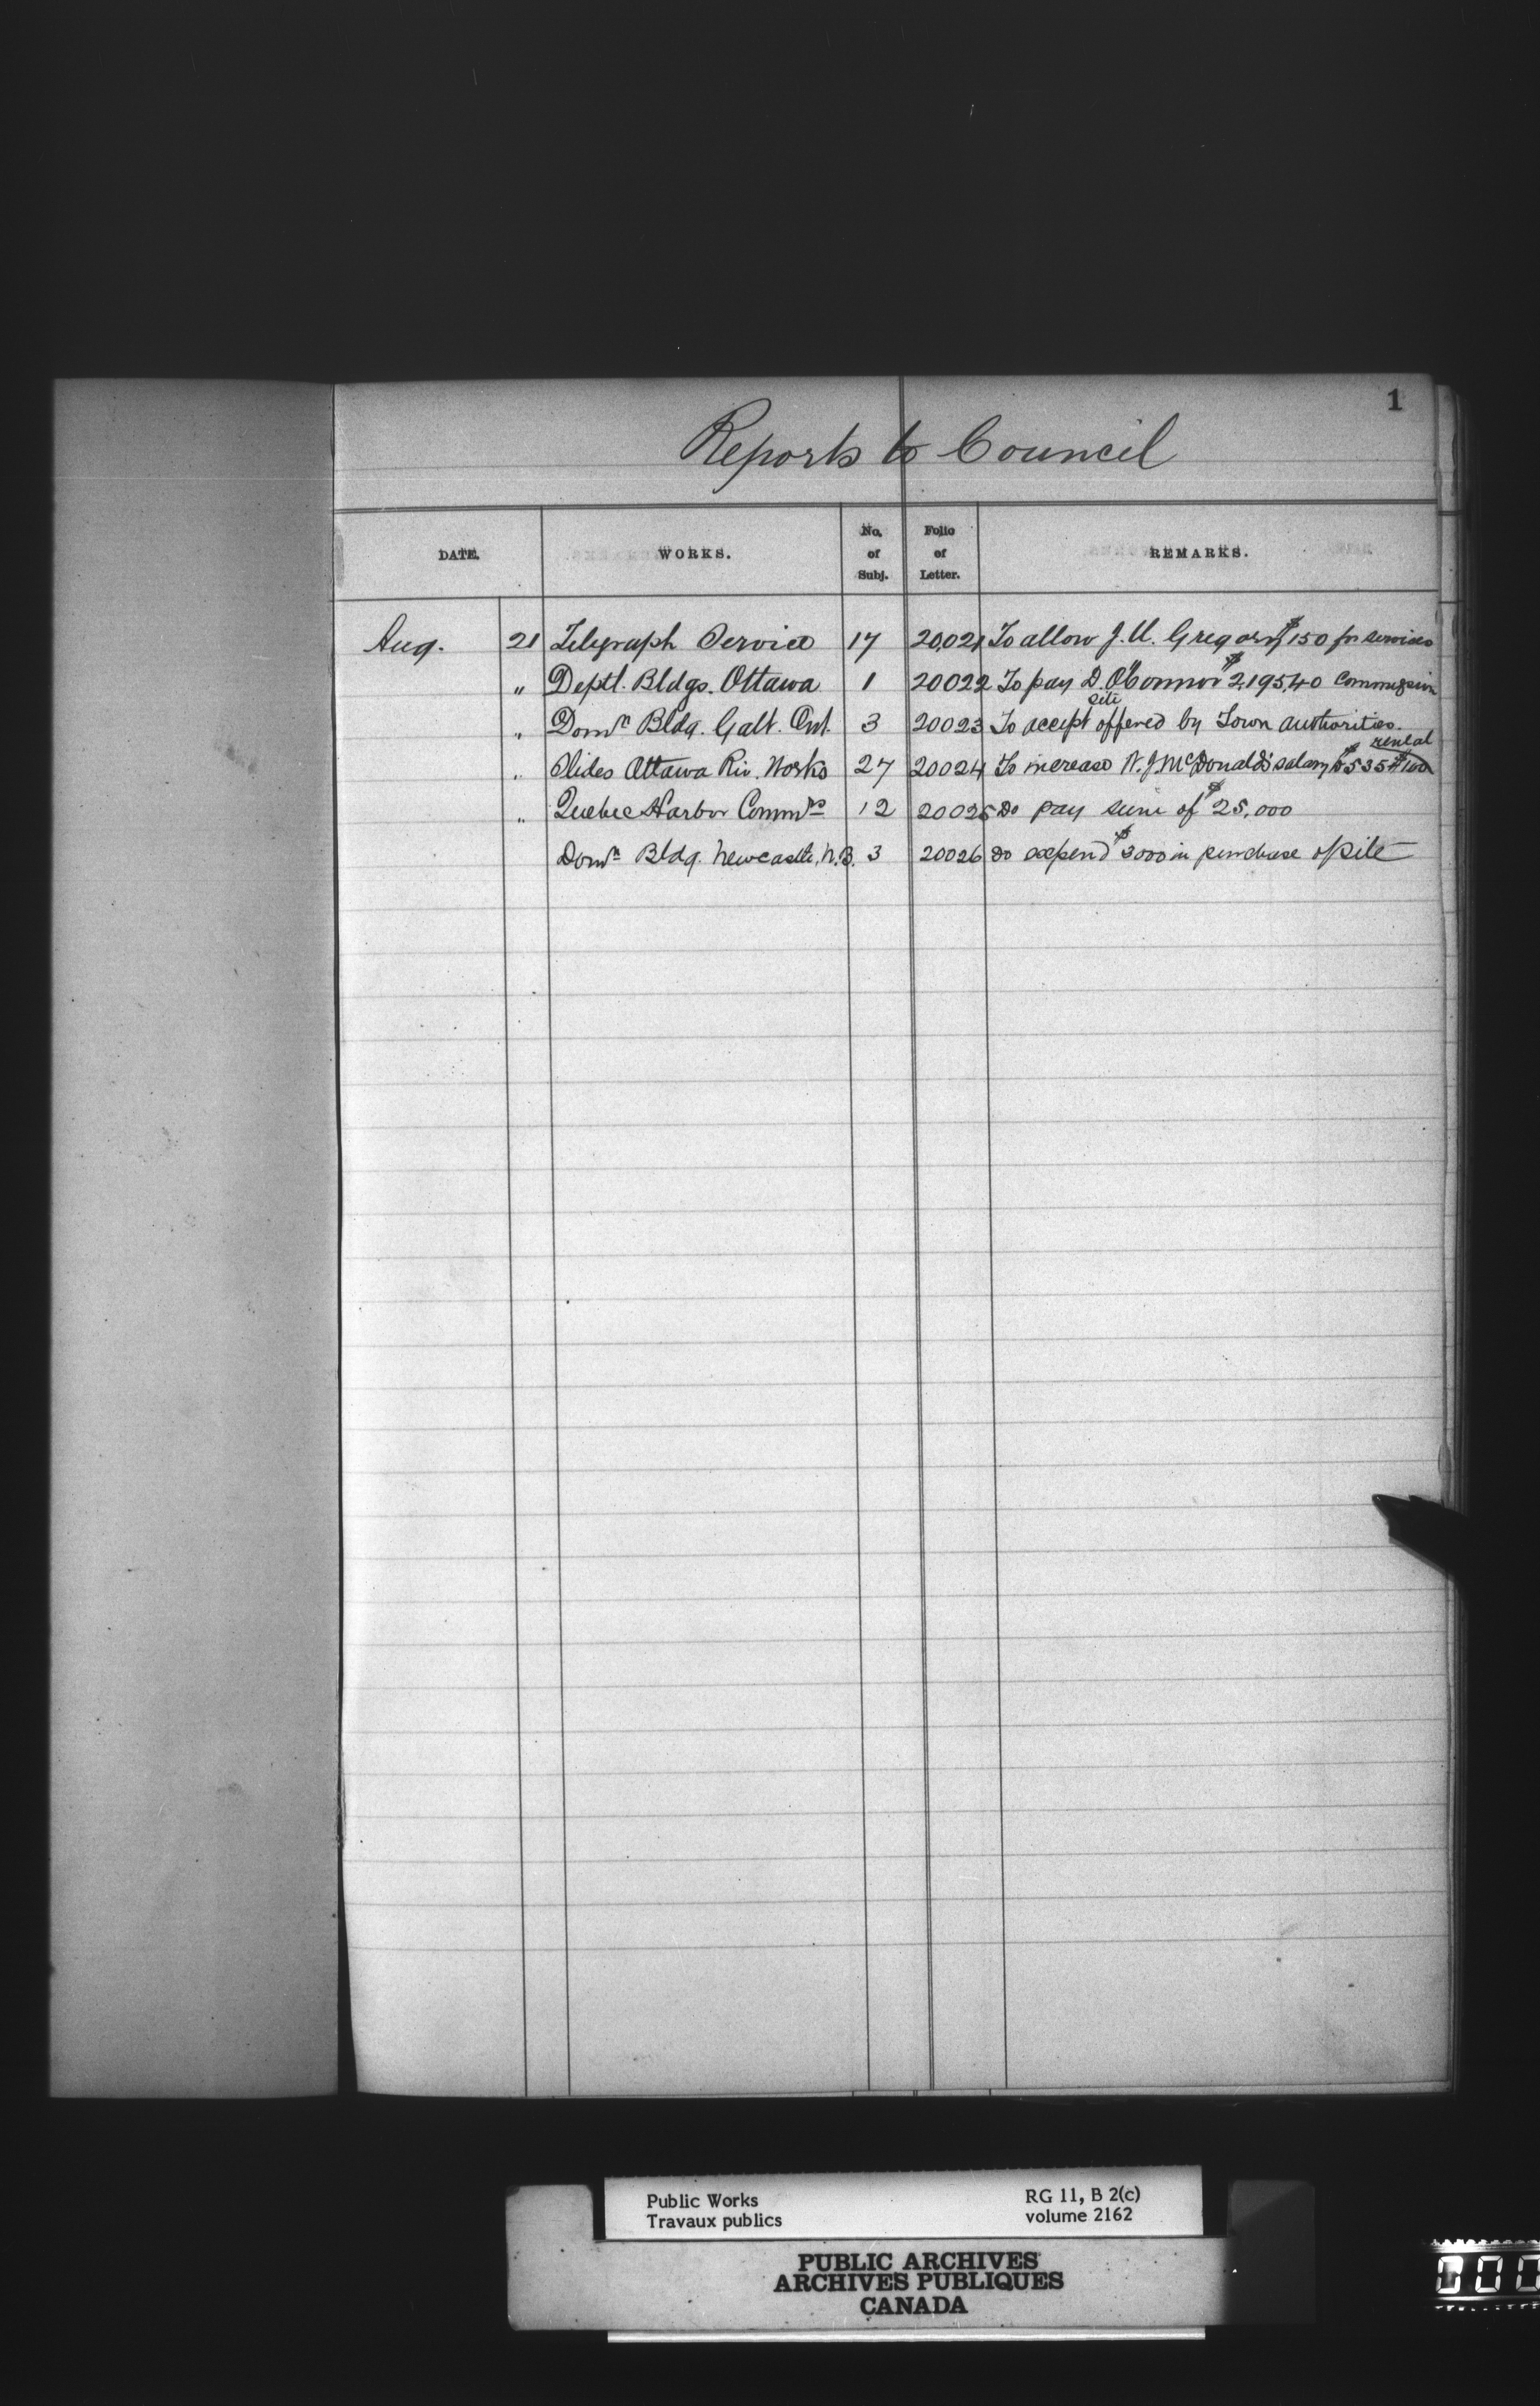 1
Reports to Council
DATE. WORKS. No. of Subj. Folio of Letter. REMARKS.
Aug. 21 Telegraph Service 17 20,021 To allow J. U. Gregory $150 for services
" Deptl. Bldgs. Ottawa 1 20022 To pay D. O'Connor $2,195.40 Commission
" Domn Bldg. Galt. Ont. 3 20023 To accept site offered by Town authorities.
" Slides Ottawa Riv. Works 27 20024 To increase N. J. McDonald's salary to $535 $100 rental
" Quebec Harbor Commrs 12 20025 Do pay sum of $25,000
Domn Bldg. Newcastle, N.B. 3 20026 Do expend $3000 in purchase of site
Public Works
Travaux publics
RG 11, B 2(c)
volume 2162
PUBLIC ARCHIVES
ARCHIVES PUBLIQUES
CANADA
000